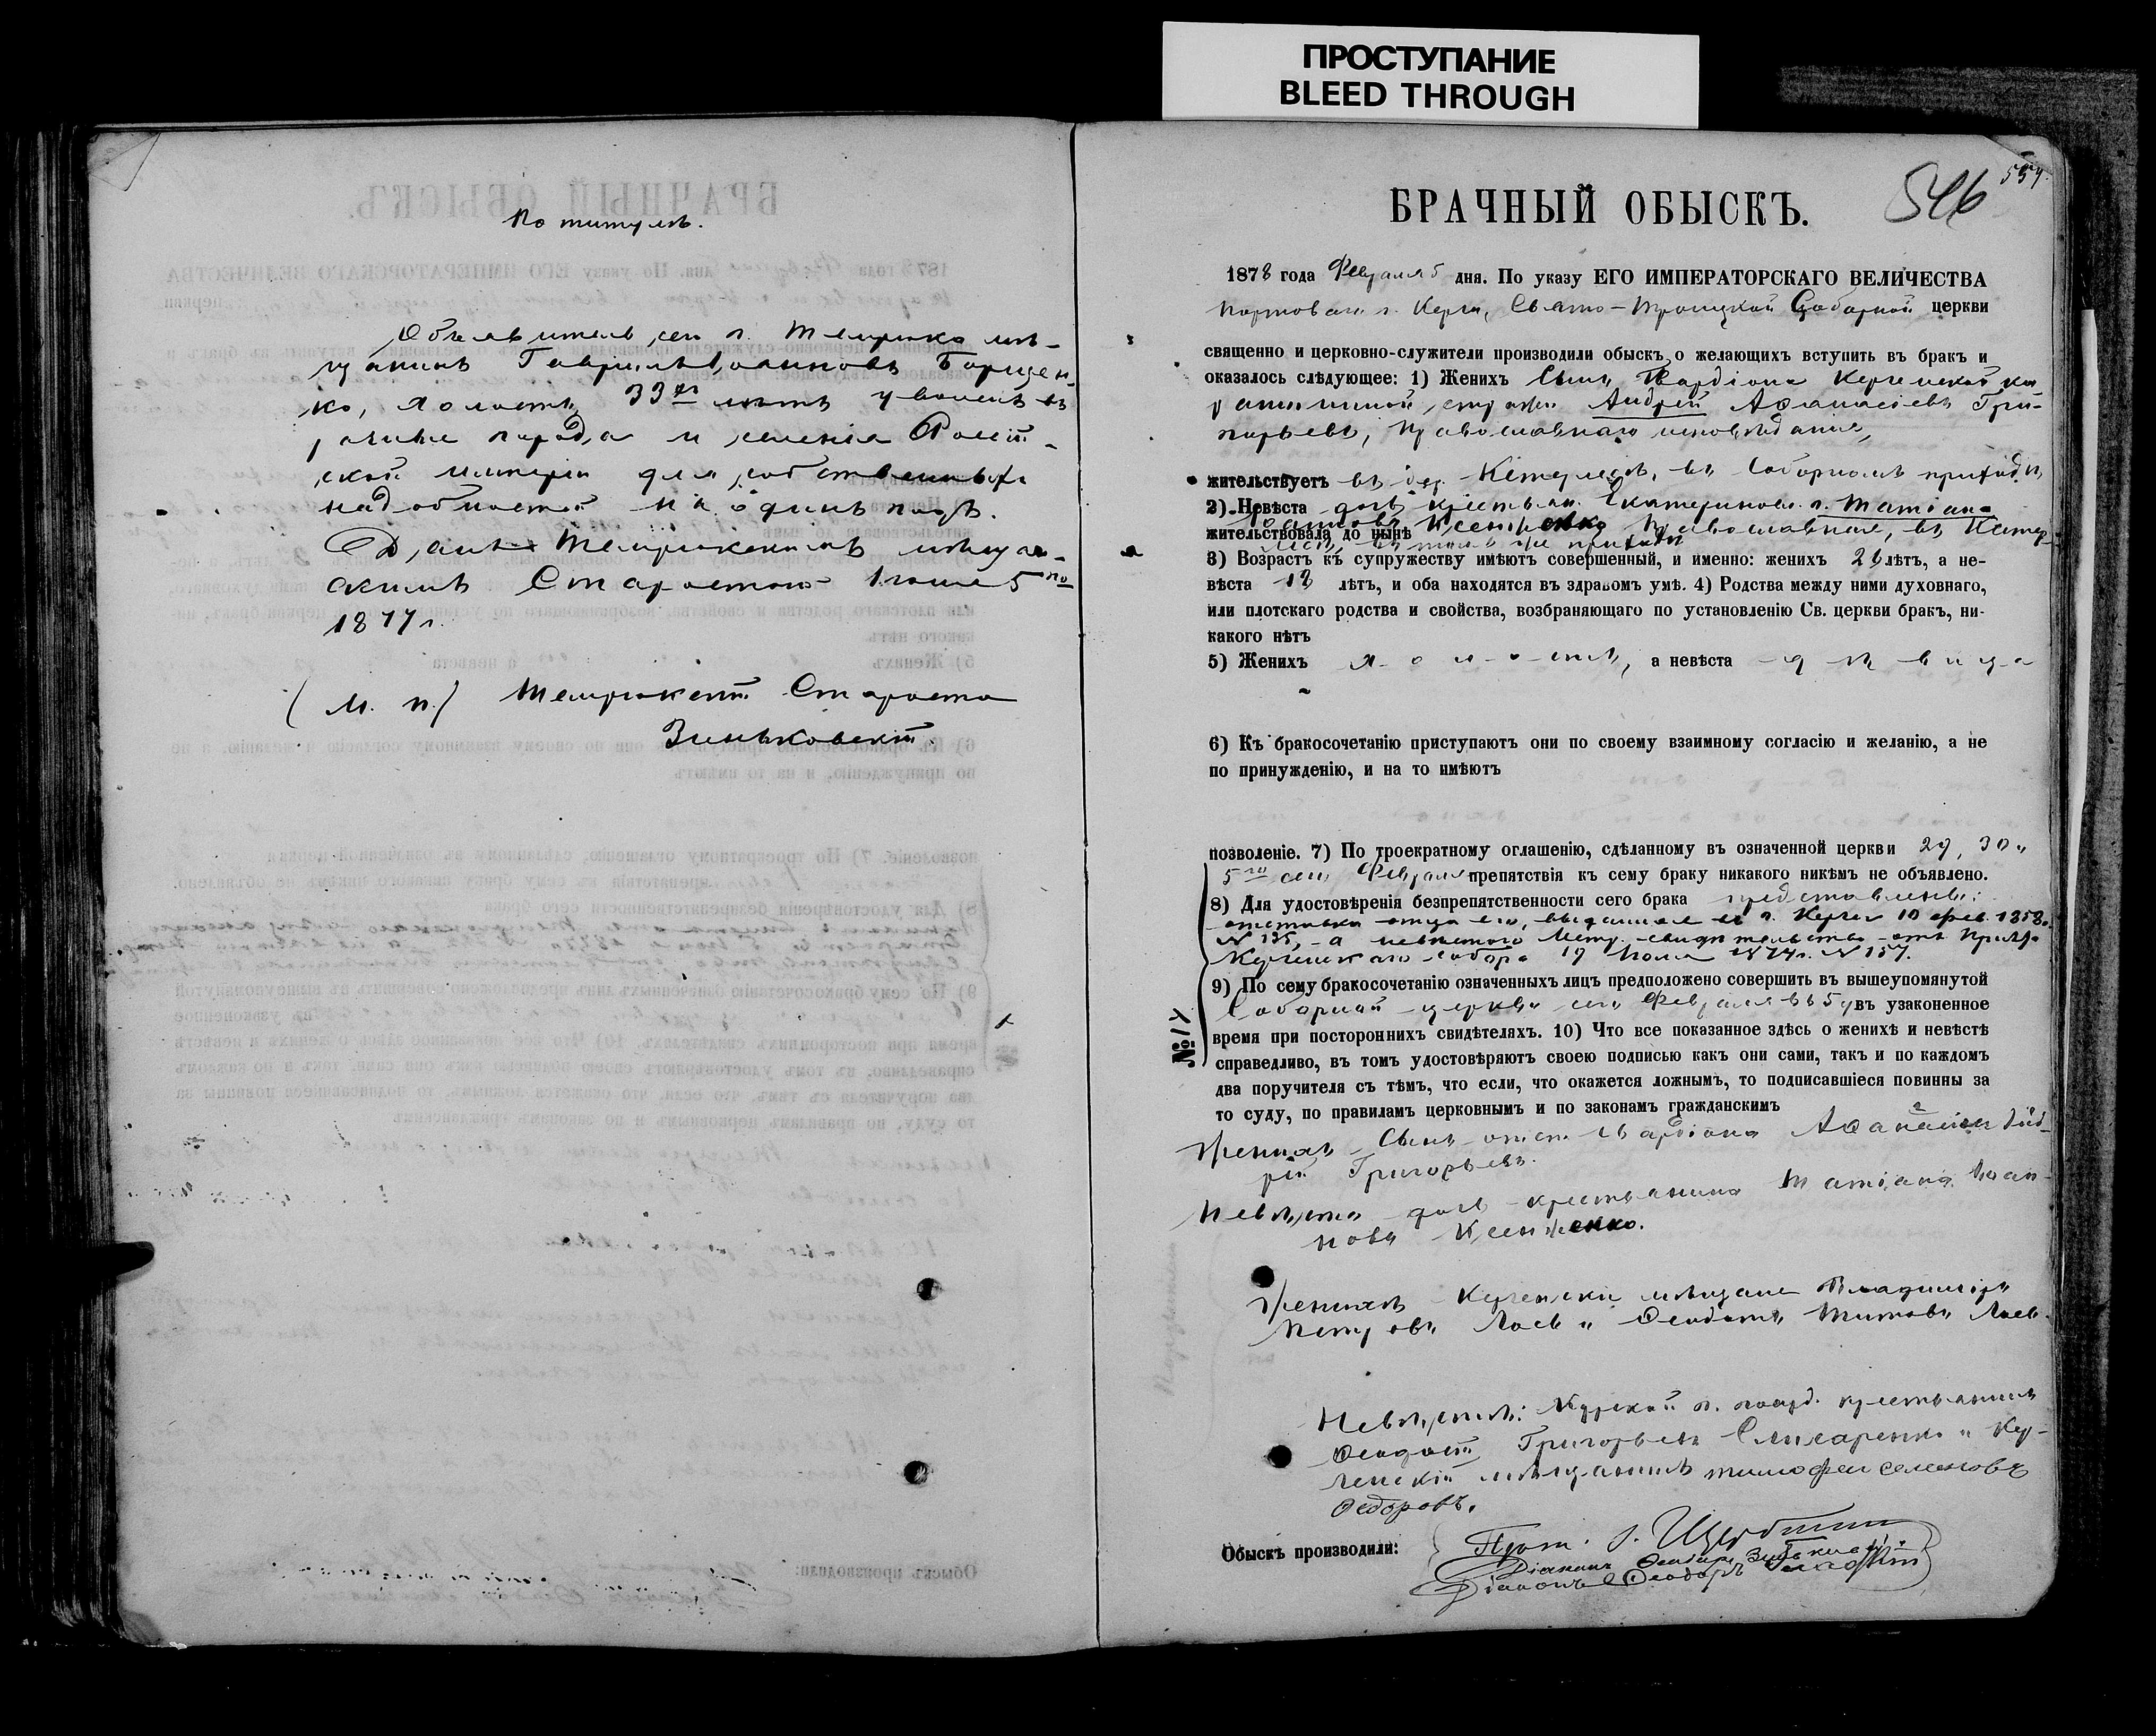 ПРОСТУПАНИЕ
BLEED THROUGH
По титулѣ.
Объявитель сей г. Темрюка мѣ-
щанинъ Гавріилъ Іоанновъ Борщен-
ко, холостъ, 33хъ лѣтъ уволенъ въ
разные города и селенія Россій-
ской имперіи для собственныхъ
надобностей на одинъ годъ.
Данъ Темрюкскимъ мѣщан-
скимъ Старостою Іюня 5го
1877 г.
(М. П.) Темрюкскій Староста
Зиньковскій.
546
БРАЧНЫЙ ОБЫСКЪ.
1878 года Февраля 5 дня. По указу ЕГО ИМПЕРАТОРСКАГО ВЕЛИЧЕСТВА
портоваго г. Керчи, Свято-Троицкой Соборной церкви
священно и церковно-служители производили обыскъ о желающихъ вступить въ бракъ и
оказалось слѣдующее: 1) Женихъ Сынъ Гвардіона Керченской ка
рантинной стражи Андрей Аѳанасіевъ Гри-
горьевъ, православнаго исповѣданія,
жительствуетъ въ дер. Кетерлезъ, въ Соборномъ приходѣ,
2) Невѣста дочь крестьян. Екатеринослав. г. Татіана
Іоаннова Ксенженко православная, въ Кетер-
жительствовала до нынѣ
лезѣ, въ томъ же приходѣ
3) Возрастъ къ супружеству имѣютъ совершенный, и именно: женихъ 26 лѣтъ, а не-
вѣста 18 лѣтъ, и оба находятся въ здравомъ умѣ. 4) Родства между ними духовнаго,
или плотскаго родства и свойства, возбраняющаго по установленію Св. церкви бракъ, ни-
какого нѣтъ
5) Женихъ холостъ, а невѣста дѣвица
6) Къ бракосочетанію приступаютъ они по своему взаимному согласію и желанію, а не
по принужденію, и на то имѣютъ
позволеніе. 7) По троекратному оглашенію, сдѣланному въ означенной церкви 29, 30 и
5го сего Февраля препятствія къ сему браку никакого никѣмъ не объявлено.
8) Для удостовѣренія безпрепятственности сего брака представлены:
отставка отца его, выданная въ г. Керчи 10 фев. 1858 г.
№ 135, а невѣстою Метр. свидѣтельство отъ
Керченскаго собора 19 1874 г. № 157.
9) По сему бракосочетанію означенныхъ лицъ предположено совершить въ вышеупомянутой
Соборной церкви сего Февраля въ 5 въ узаконенное
№ 17
время при постороннихъ свидѣтеляхъ. 10) Что все показанное здѣсь о женихѣ и невѣстѣ
справедливо, въ томъ удостовѣряютъ своею подписью какъ они сами, такъ и по каждомъ
два поручителя съ тѣмъ, что если, что окажется ложнымъ, то подписавшіеся повинны за
то суду, по правиламъ церковнымъ и по законамъ гражданскимъ
Женихъ Сынъ отст. Гвардіона Аѳанасія Анд-
рей Григорьевъ.
Невѣста дочь крестьянина Татіана Іоан-
нова Ксенженко.
Женихѣ Керченскіе мѣщане Владиміръ
Петровъ Лаев и Ѳеодотъ Титовъ Лаев.
Невѣстѣ: Курской г. госуд. крестьянинъ
Ѳеодосій Григорьевъ Слисаренко и Кер-
ченскій мѣщанинъ Тимофеи Семеновъ
Ѳедоровъ.
Обыскъ производили:
Прот. І. Щербинин
Діаконъ Ѳеодоръ Зиньковскій.
Діаконъ Ѳеодоръ Гладкій